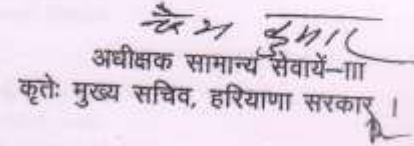 कुमार
अधीक्षक सामान्य सेवायें-III
कृतेः मुख्य सचिव, हरियाणा सरकार ।